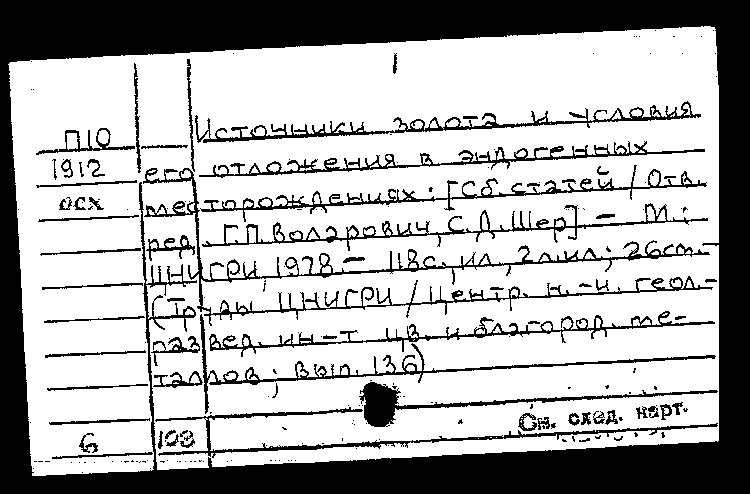 I
П10 Источники золота и условия
1912 его отложения в эндогенных
осх месторождениях: [Сб. статей / Отв.
ред. Г.П. Воларович, С.Д. Шер] – М.:
ЦНИГРИ, 1978. – 118с., ил., 2л.ил; 26см. –
(Труды ЦНИГРИ / Центр. н.-и. геол.-
развед. ин-т цв. и благород. ме-
таллов; вып. 136)
См. след. карт.
6 108